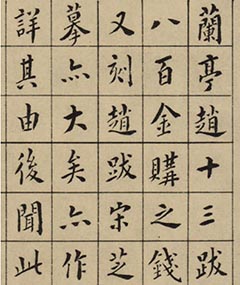 蘭亭趙十三跋
八百金購之錢
又刻趙跋宋芝
摹亦大矣亦作
詳其由後聞此